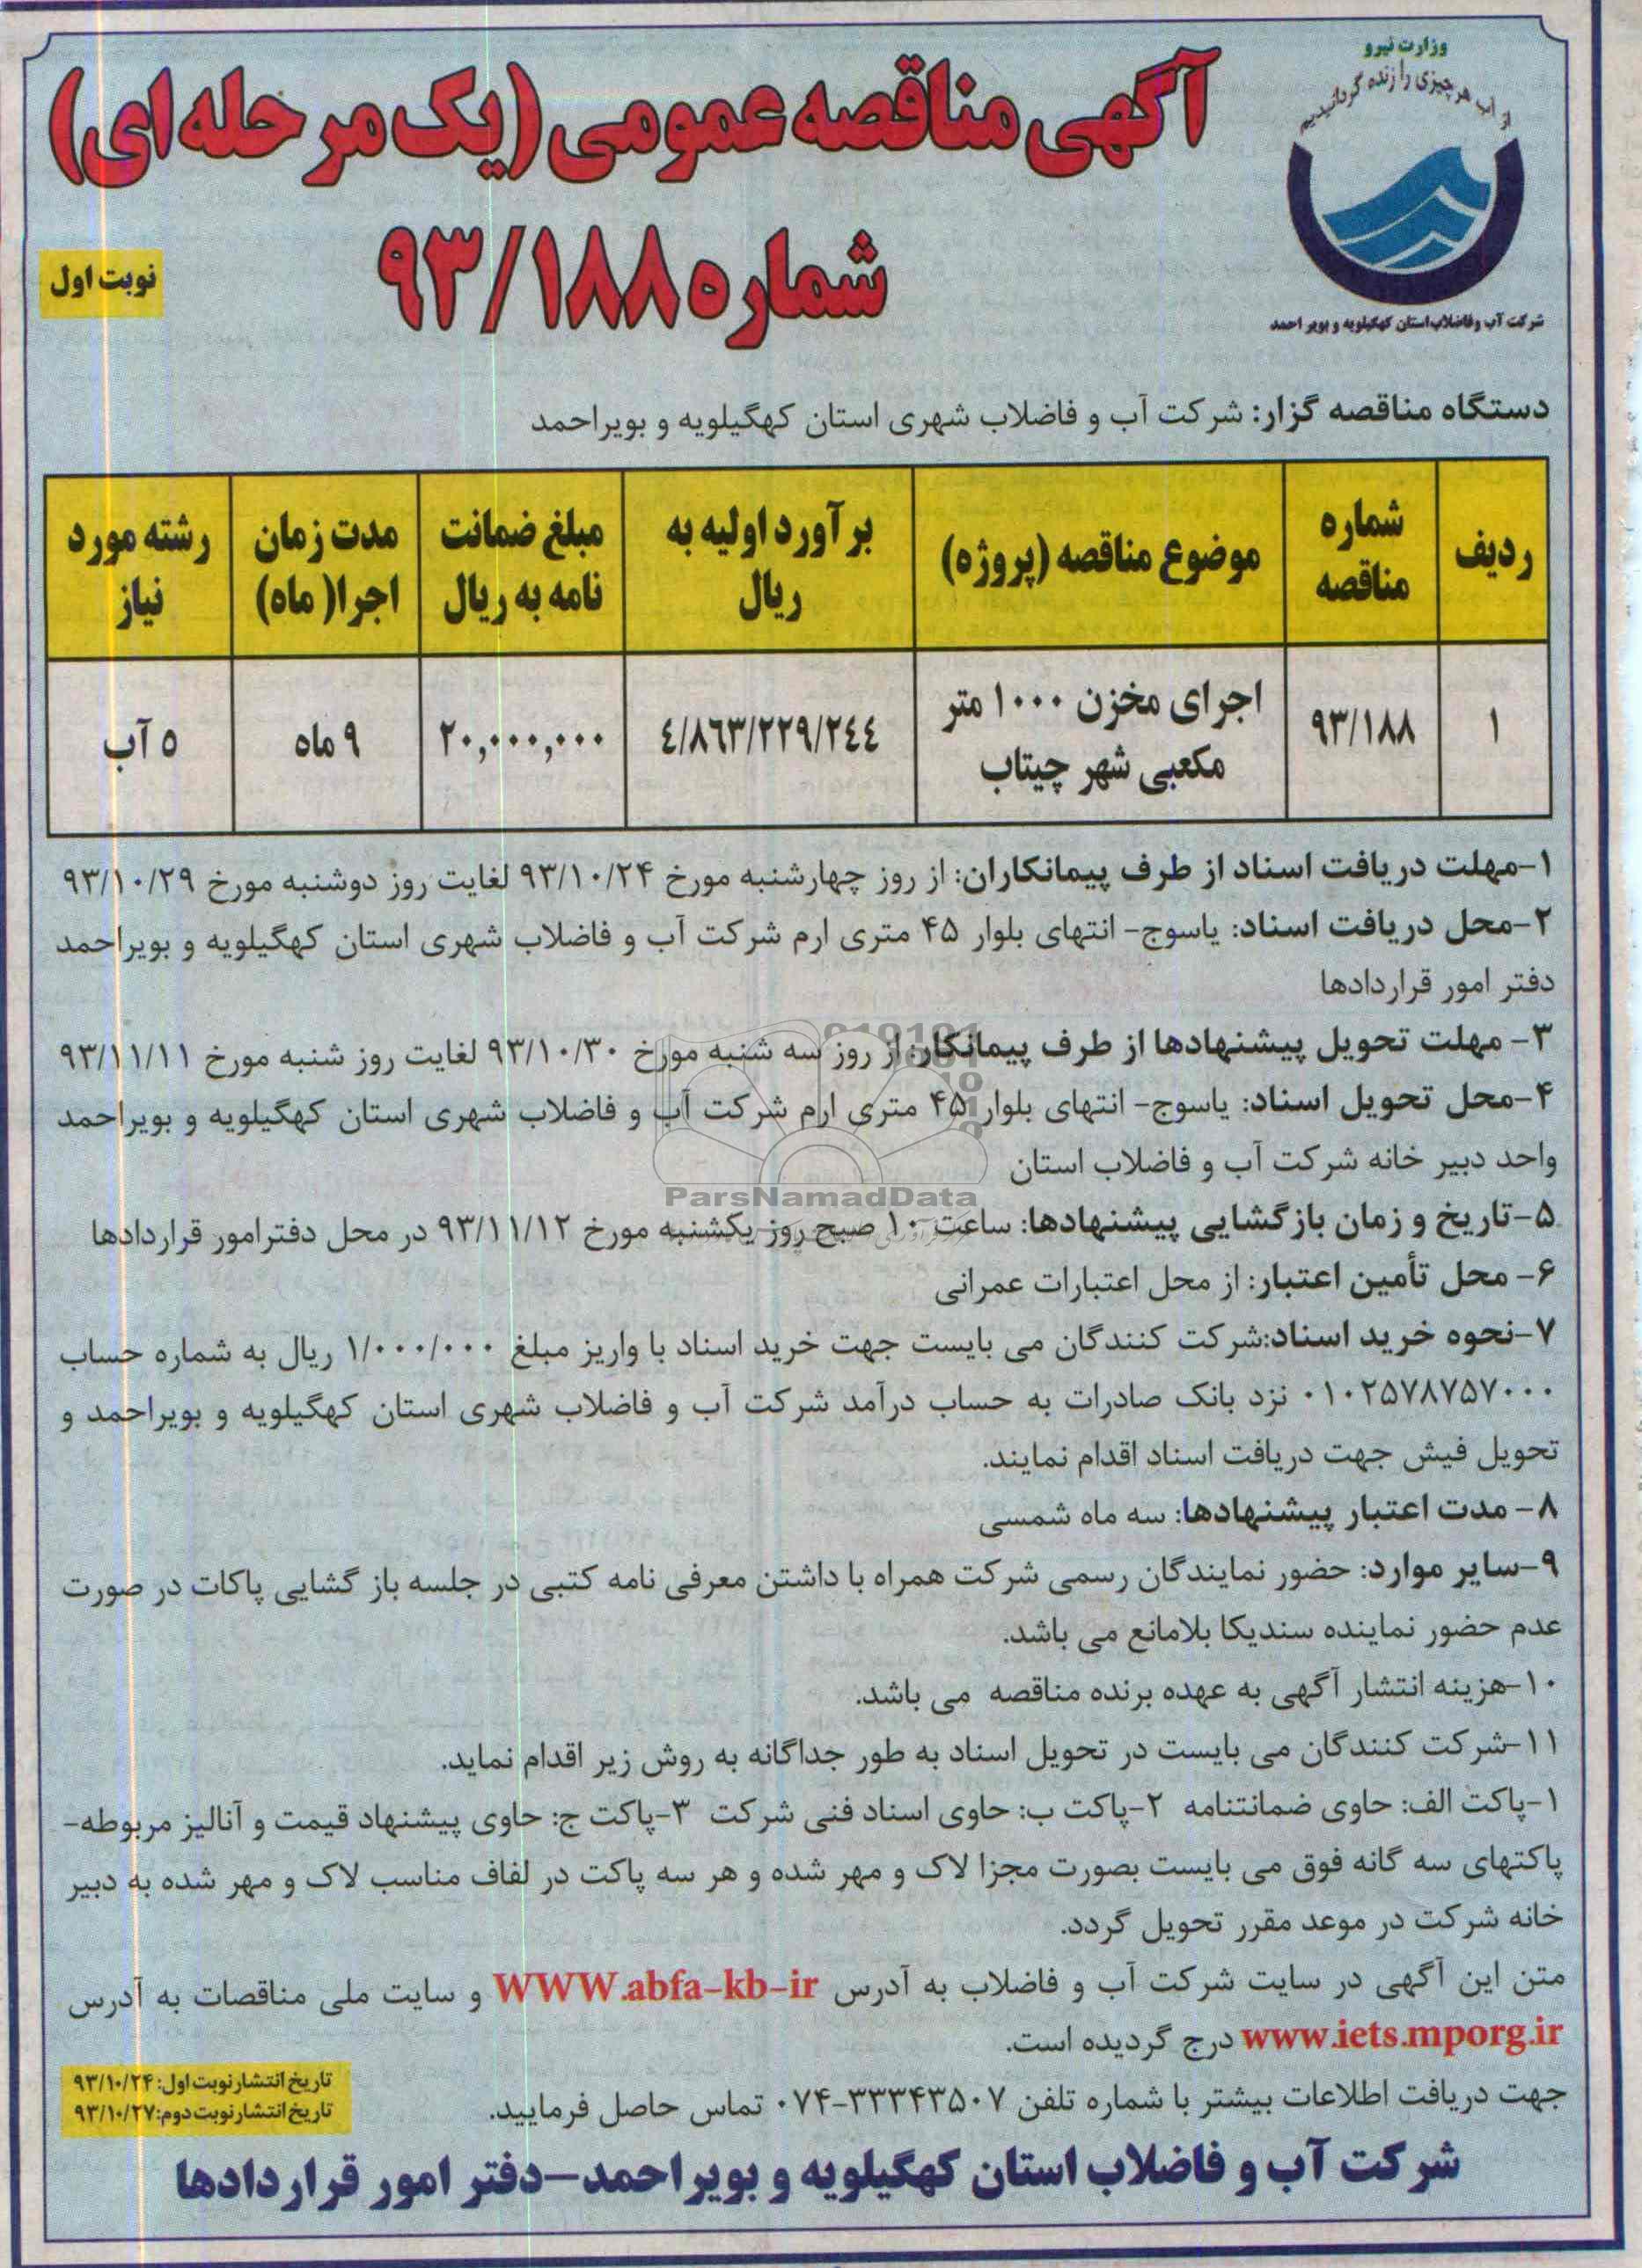 وزارت نیرو
از آب هر چیزی را زنده گردانیدیم
شرکت آب و فاضلاب استان کهگیلویه و بویر احمد
آگهی مناقصه عمومی (یک مرحله ای)
شماره ۹۳/۱۸۸
نوبت اول
دستگاه مناقصه گزار: شرکت آب و فاضلاب شهری استان کهگیلویه و بویراحمد
ردیف | شماره مناقصه | موضوع مناقصه (پروژه) | برآورد اولیه به ریال | مبلغ ضمانت نامه به ریال | مدت زمان اجرا( ماه) | رشته مورد نیاز
۱ | ۹۳/۱۸۸ | اجرای مخزن ۱۰۰۰ متر مکعبی شهر چیتاب | ٤/۸٦۳/۲۲۹/۲٤٤ | ۲۰,۰۰۰,۰۰۰ | ۹ ماه | ۵ آب
۱-مهلت دریافت اسناد از طرف پیمانکاران: از روز چهارشنبه مورخ ۹۳/۱۰/۲۴ لغایت روز دوشنبه مورخ ۹۳/۱۰/۲۹
۲-محل دریافت اسناد: یاسوج- انتهای بلوار ۴۵ متری ارم شرکت آب و فاضلاب شهری استان کهگیلویه و بویراحمد
دفتر امور قراردادها
۳- مهلت تحویل پیشنهادها از طرف پیمانکار: از روز سه شنبه مورخ ۹۳/۱۰/۳۰ لغایت روز شنبه مورخ ۹۳/۱۱/۱۱
۴-محل تحویل اسناد: یاسوج- انتهای بلوار ۴۵ متری ارم شرکت آب و فاضلاب شهری استان کهگیلویه و بویراحمد
واحد دبیر خانه شرکت آب و فاضلاب استان
ParsNamadData
۵-تاریخ و زمان بازگشایی پیشنهادها: ساعت ۱۰ صبح روز یکشنبه مورخ ۹۳/۱۱/۱۲ در محل دفترامور قراردادها
۶- محل تأمین اعتبار: از محل اعتبارات عمرانی
۷-نحوه خرید اسناد:شرکت کنندگان می بایست جهت خرید اسناد با واریز مبلغ ۱/۰۰۰/۰۰۰ ریال به شماره حساب
۰۱۰۲۵۷۸۷۵۷۰۰۰ نزد بانک صادرات به حساب درآمد شرکت آب و فاضلاب شهری استان کهگیلویه و بویراحمد و
تحویل فیش جهت دریافت اسناد اقدام نمایند.
۸- مدت اعتبار پیشنهادها: سه ماه شمسی
۹-سایر موارد: حضور نمایندگان رسمی شرکت همراه با داشتن معرفی نامه کتبی در جلسه باز گشایی پاکات در صورت
عدم حضور نماینده سندیکا بلامانع می باشد.
۱۰-هزینه انتشار آگهی به عهده برنده مناقصه می باشد.
۱۱-شرکت کنندگان می بایست در تحویل اسناد به طور جداگانه به روش زیر اقدام نماید.
۱-پاکت الف: حاوی ضمانتنامه ۲-پاکت ب: حاوی اسناد فنی شرکت ۳-پاکت ج: حاوی پیشنهاد قیمت و آنالیز مربوطه-
پاکتهای سه گانه فوق می بایست بصورت مجزا لاک و مهر شده و هر سه پاکت در لفاف مناسب لاک و مهر شده به دبیر
خانه شرکت در موعد مقرر تحویل گردد.
متن این آگهی در سایت شرکت آب و فاضلاب به آدرس WWW.abfa-kb-ir و سایت ملی مناقصات به آدرس
www.iets.mporg.ir درج گردیده است.
جهت دریافت اطلاعات بیشتر با شماره تلفن ۳۳۳۴۳۵۰۷-۰۷۴ تماس حاصل فرمایید.
تاریخ انتشار نوبت اول: ۹۳/۱۰/۲۴
تاریخ انتشار نوبت دوم: ۹۳/۱۰/۲۷
شرکت آب و فاضلاب استان کهگیلویه و بویراحمد-دفتر امور قراردادها